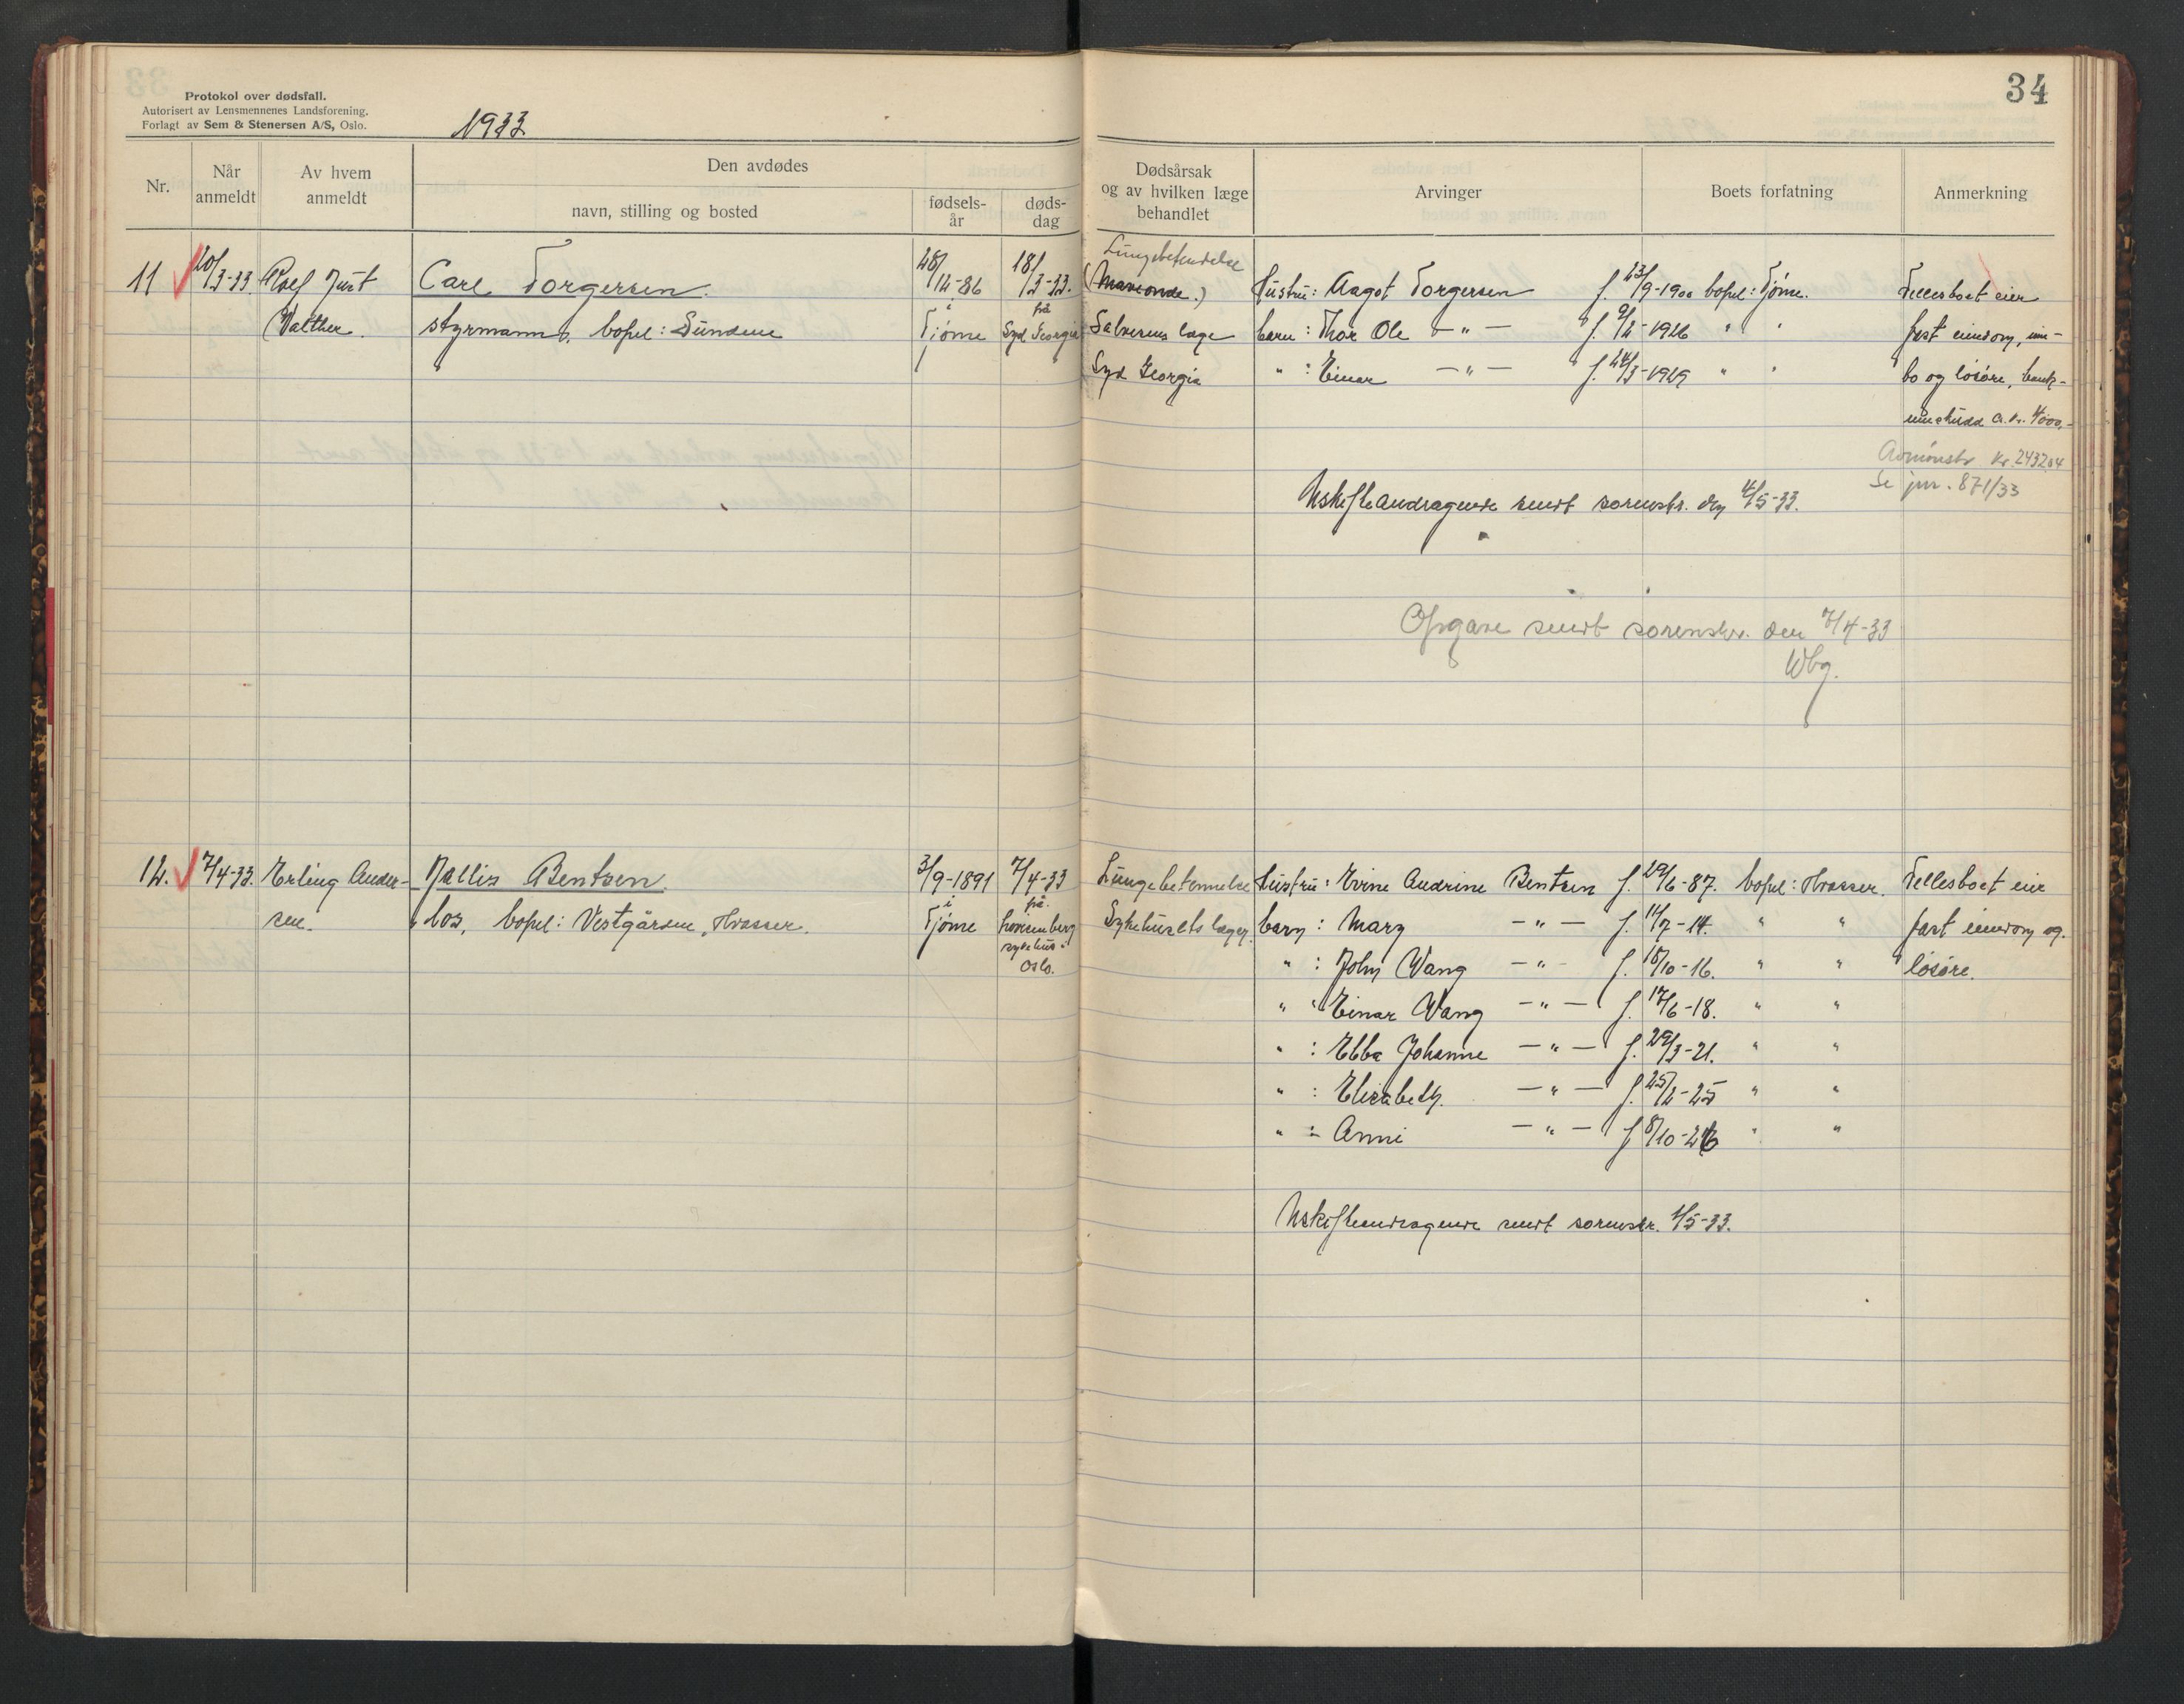 Protokol over dødsfall.
Autorisert av Lensmennenes Landsforening.
Forlagt av Sem & Stenersen A/S, Oslo.
1933
34
Nr.
Når anmeldt
Av hvem anmeldt
Den avdødes
navn, stilling og bosted
fødsels-år
døds-dag
Dødsårsak og av hvilken læge behandlet
Arvinger
Boets forfatning
Anmerkning
11 20/3-33 Just Carl Torgersen. 28/12-86 18/3-33. Lungebetendelse
Hustru: Aagot Torgersen f. 23/9-1900 bopel: Tjöme. Fellesboet eier
Walther. styrmann, bopel: Sundene i Tjöme på Syd Georgia læge
barn: Thor Ole -"- f. 9/2-1926 " " fast eiendom, inn-
Syd Georgia " : Einar -"- f. 24/3-1929 " " bo og lösöre, bank-
innskudd a. kr. 4000,-
kr. 2432,04
Uskifteandragende sendt sorenskr. den 4/5-33.
Se jnr. 871/33
Opgave sendt sorenskr. den 7/4-33
Wbg.
12. 7/4-33. Erling Ander- Nallis Bentsen. 3/9-1891 7/4-33 Lungebetennelse
Hustru: Evine Andrine Bentsen f. 29/6-87. bopel: Hvasser. Fellesboet eier
sen. los, bopel: Vestgården, Hvasser. i Tjöme på Lovisenberg sykehus Oslo. Sykehusets læger.
barn: Mary -"- f. 14/7-14. " " fast eiendom og
" : John Wang -"- f. 18/10-16. " " lösöre.
" : Einar Wang -"- f. 17/6-18. " "
" : Ebba Johanne -"- f. 29/3-21. " "
" : Elisabeth -"- f. 25/2-25 " "
" : Anni -"- f. 8/10-26 " "
Uskifteandragende sendt sorenskr. 4/5-33.